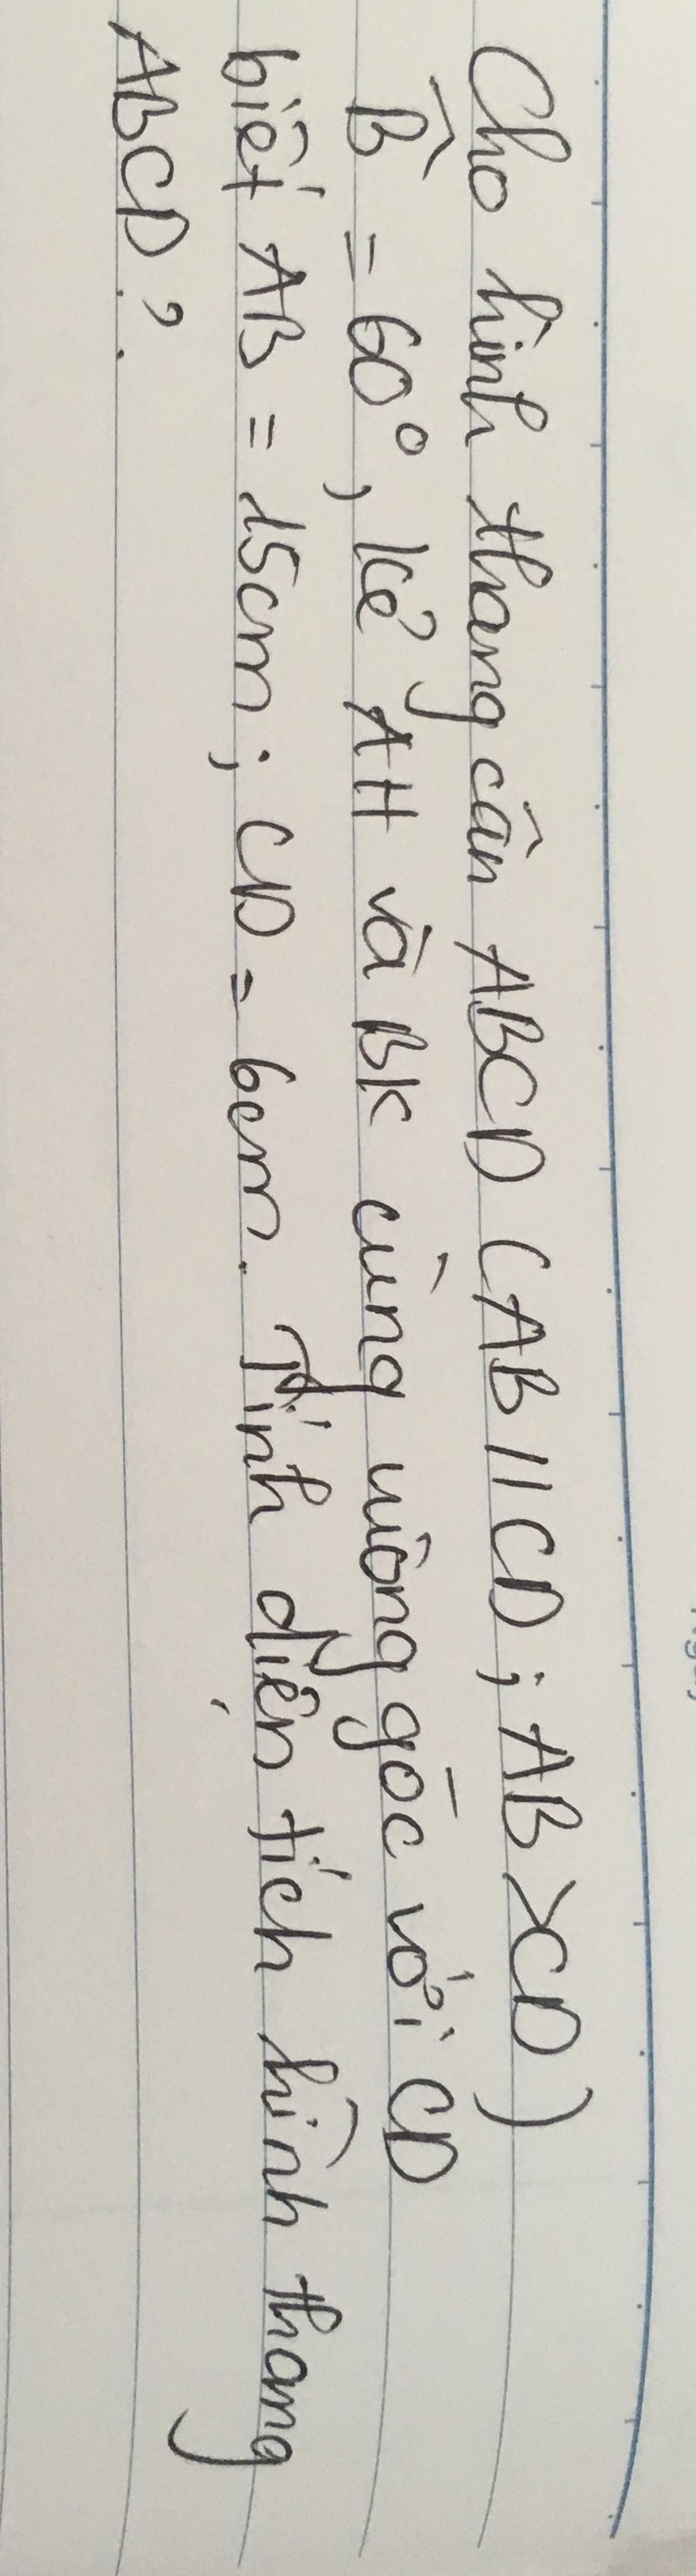 Cho hình thang cân ABCD (AB // CD ; AB > CD)
B̂ = 60°, kẻ AH và BK cùng vuông góc với CD
biết AB = 15cm ; CD = 6cm. Tính diện tích hình thang
ABCD ?.